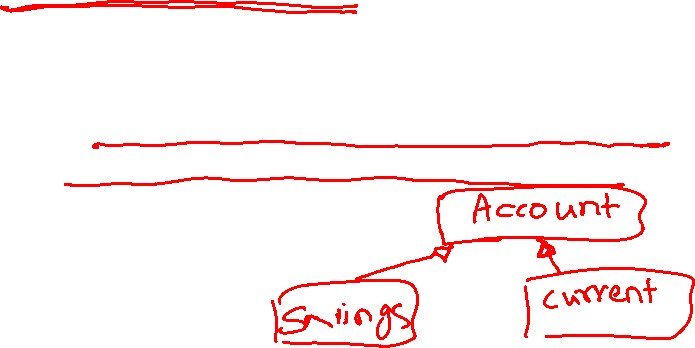 Account
Saviings
current